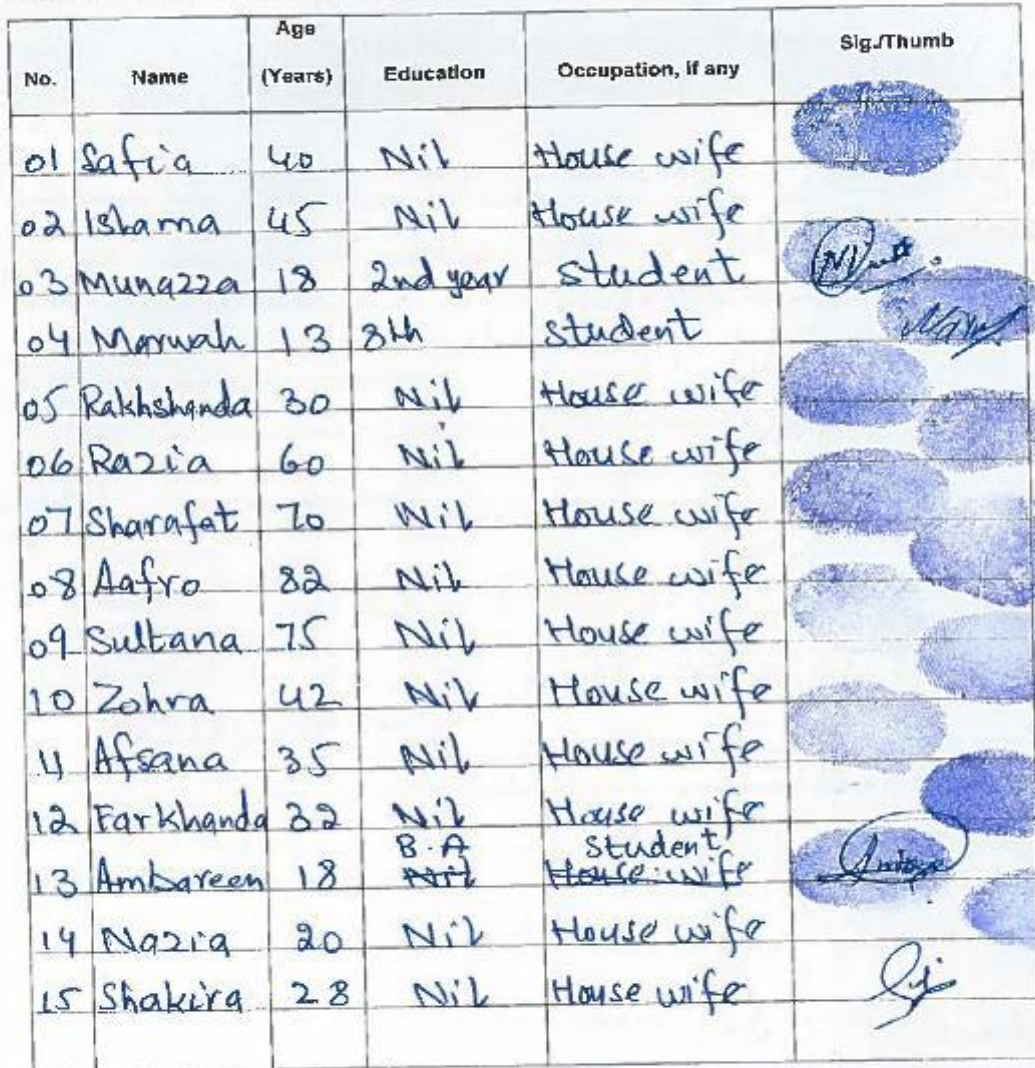 No. Name Age (Years) Education Occupation, if any Sig./Thumb
01 Safia 40 Nil House wife
02 Islama 45 Nil House wife
03 Munazza 18 2nd year student
04 Marwah 13 8th student
05 Rakhshanda 30 Nil House wife
06 Razia 60 Nil House wife
07 Sharafat 70 Nil House wife
08 Aafro 82 Nil House wife
09 Sultana 75 Nil House wife
10 Zohra 42 Nil House wife
11 Afsana 35 Nil House wife
12 Farkhanda 32 Nil House wife
B.A Student
13 Ambareen 18 Nil House wife
14 Nazia 20 Nil House wife
15 Shakira 28 Nil House wife